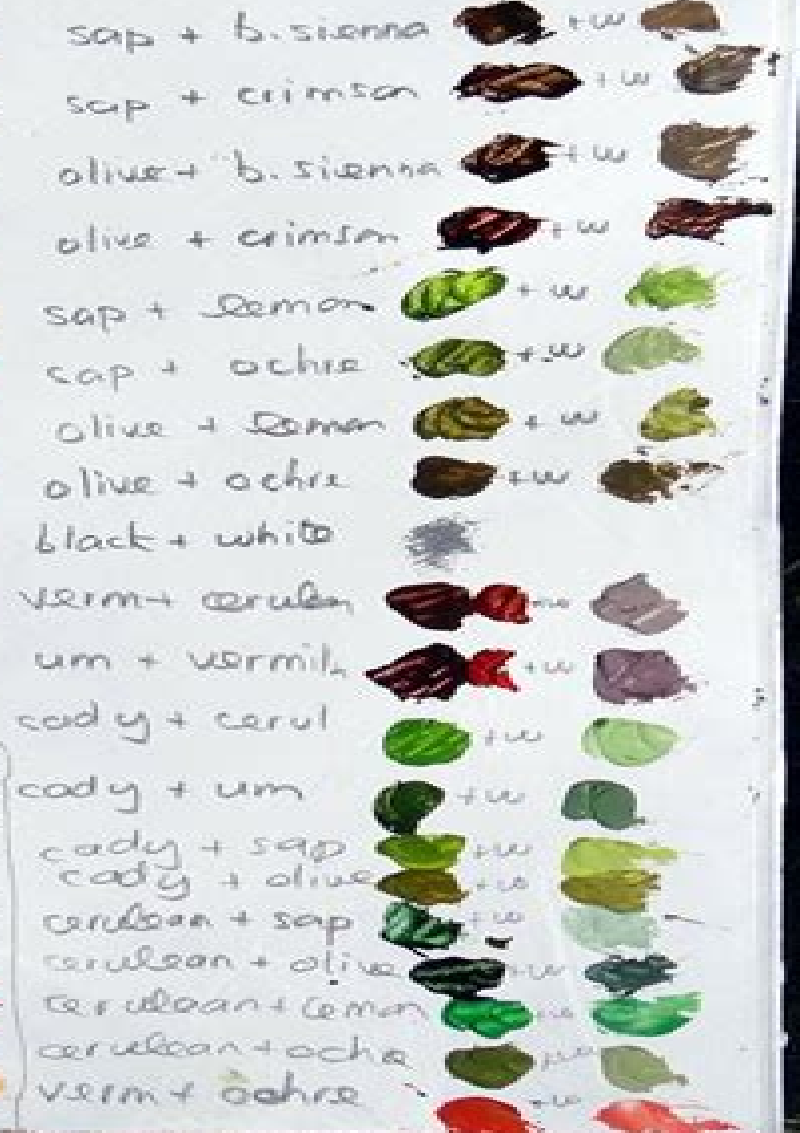 sap + b.sienna +w
sap + crimson +w
olive + b.sienna +w
olive + crimson +w
sap + lemon +w
sap + ochre +w
olive + lemon +w
olive + ochre +w
black + white
verm + cerulean +w
um + vermil. +w
cad y + cerul +w
cad y + um +w
cad y + sap +w
cad y + olive +w
cerulean + sap +w
cerulean + olive +w
cerulean + lemon +w
cerulean + ochre +w
verm + ochre +w